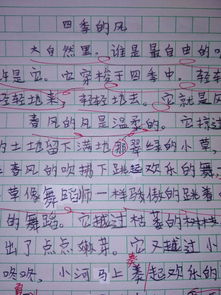 四季的风
大自然里,谁是最自由的?
许是它。它穿梭于四季中,轻轻
轻轻地来,轻轻地去。它就是风
春风的风是温柔的。它掠过
的土地留下满地那翠绿的小草,
春风的吹拂下跳起欢乐的舞
草像舞蹈师一样骄傲的跳着
的舞蹈。它越过枯萎的
出了点点嫩芽。它又越过小
咚咚,小河马上奏起欢乐的